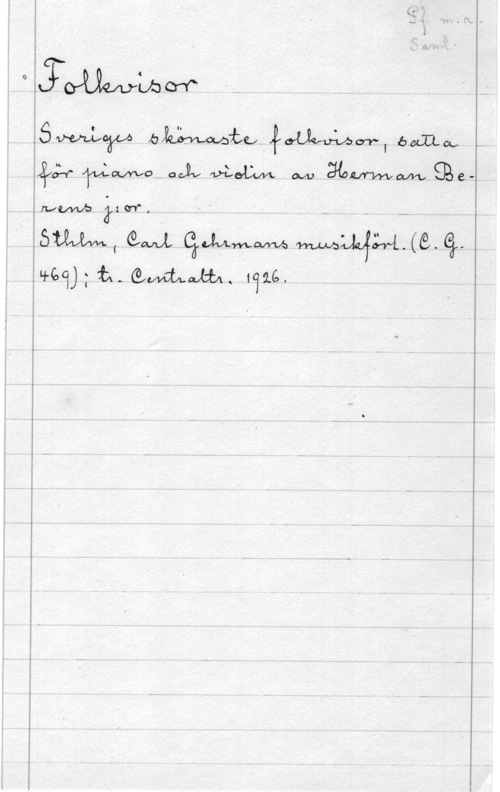 Pf. m. a.
Saml.
Folkvisor
Sveriges skönaste folkvisor, satta
för piano och violin av Herman Be-
rens j:or.
Sthlm, Carl Gehrmans musikförl. (C. G.
469); tr. Centraltr. 1926.